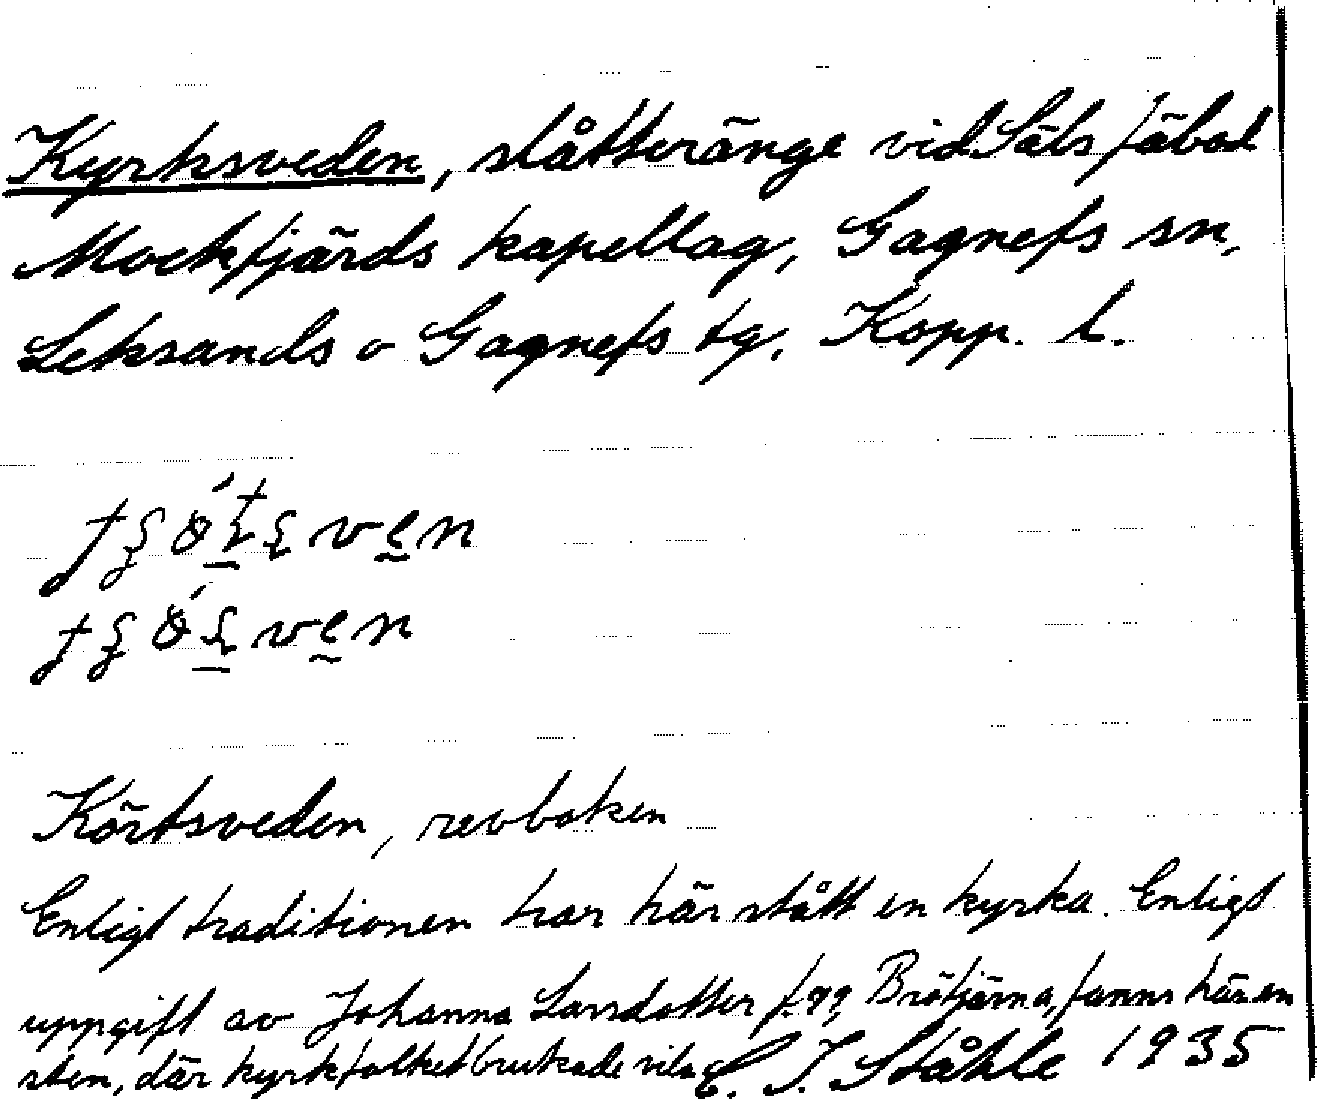 Kyrksveden, slåtteränge vid Säls fäbod
Mockfjärds kapellag, Gagnefs sn,
Leksands o Gagnefs tg, Kopp. l.
Körtsveden, revboken
Enligt traditionen har här stått en kyrka. Enligt
uppgift av Johanna Larsdotter f. 99, Brötjärna, fanns här en
sten, där kyrkfolket brukade vila C. I. Ståhle 1935